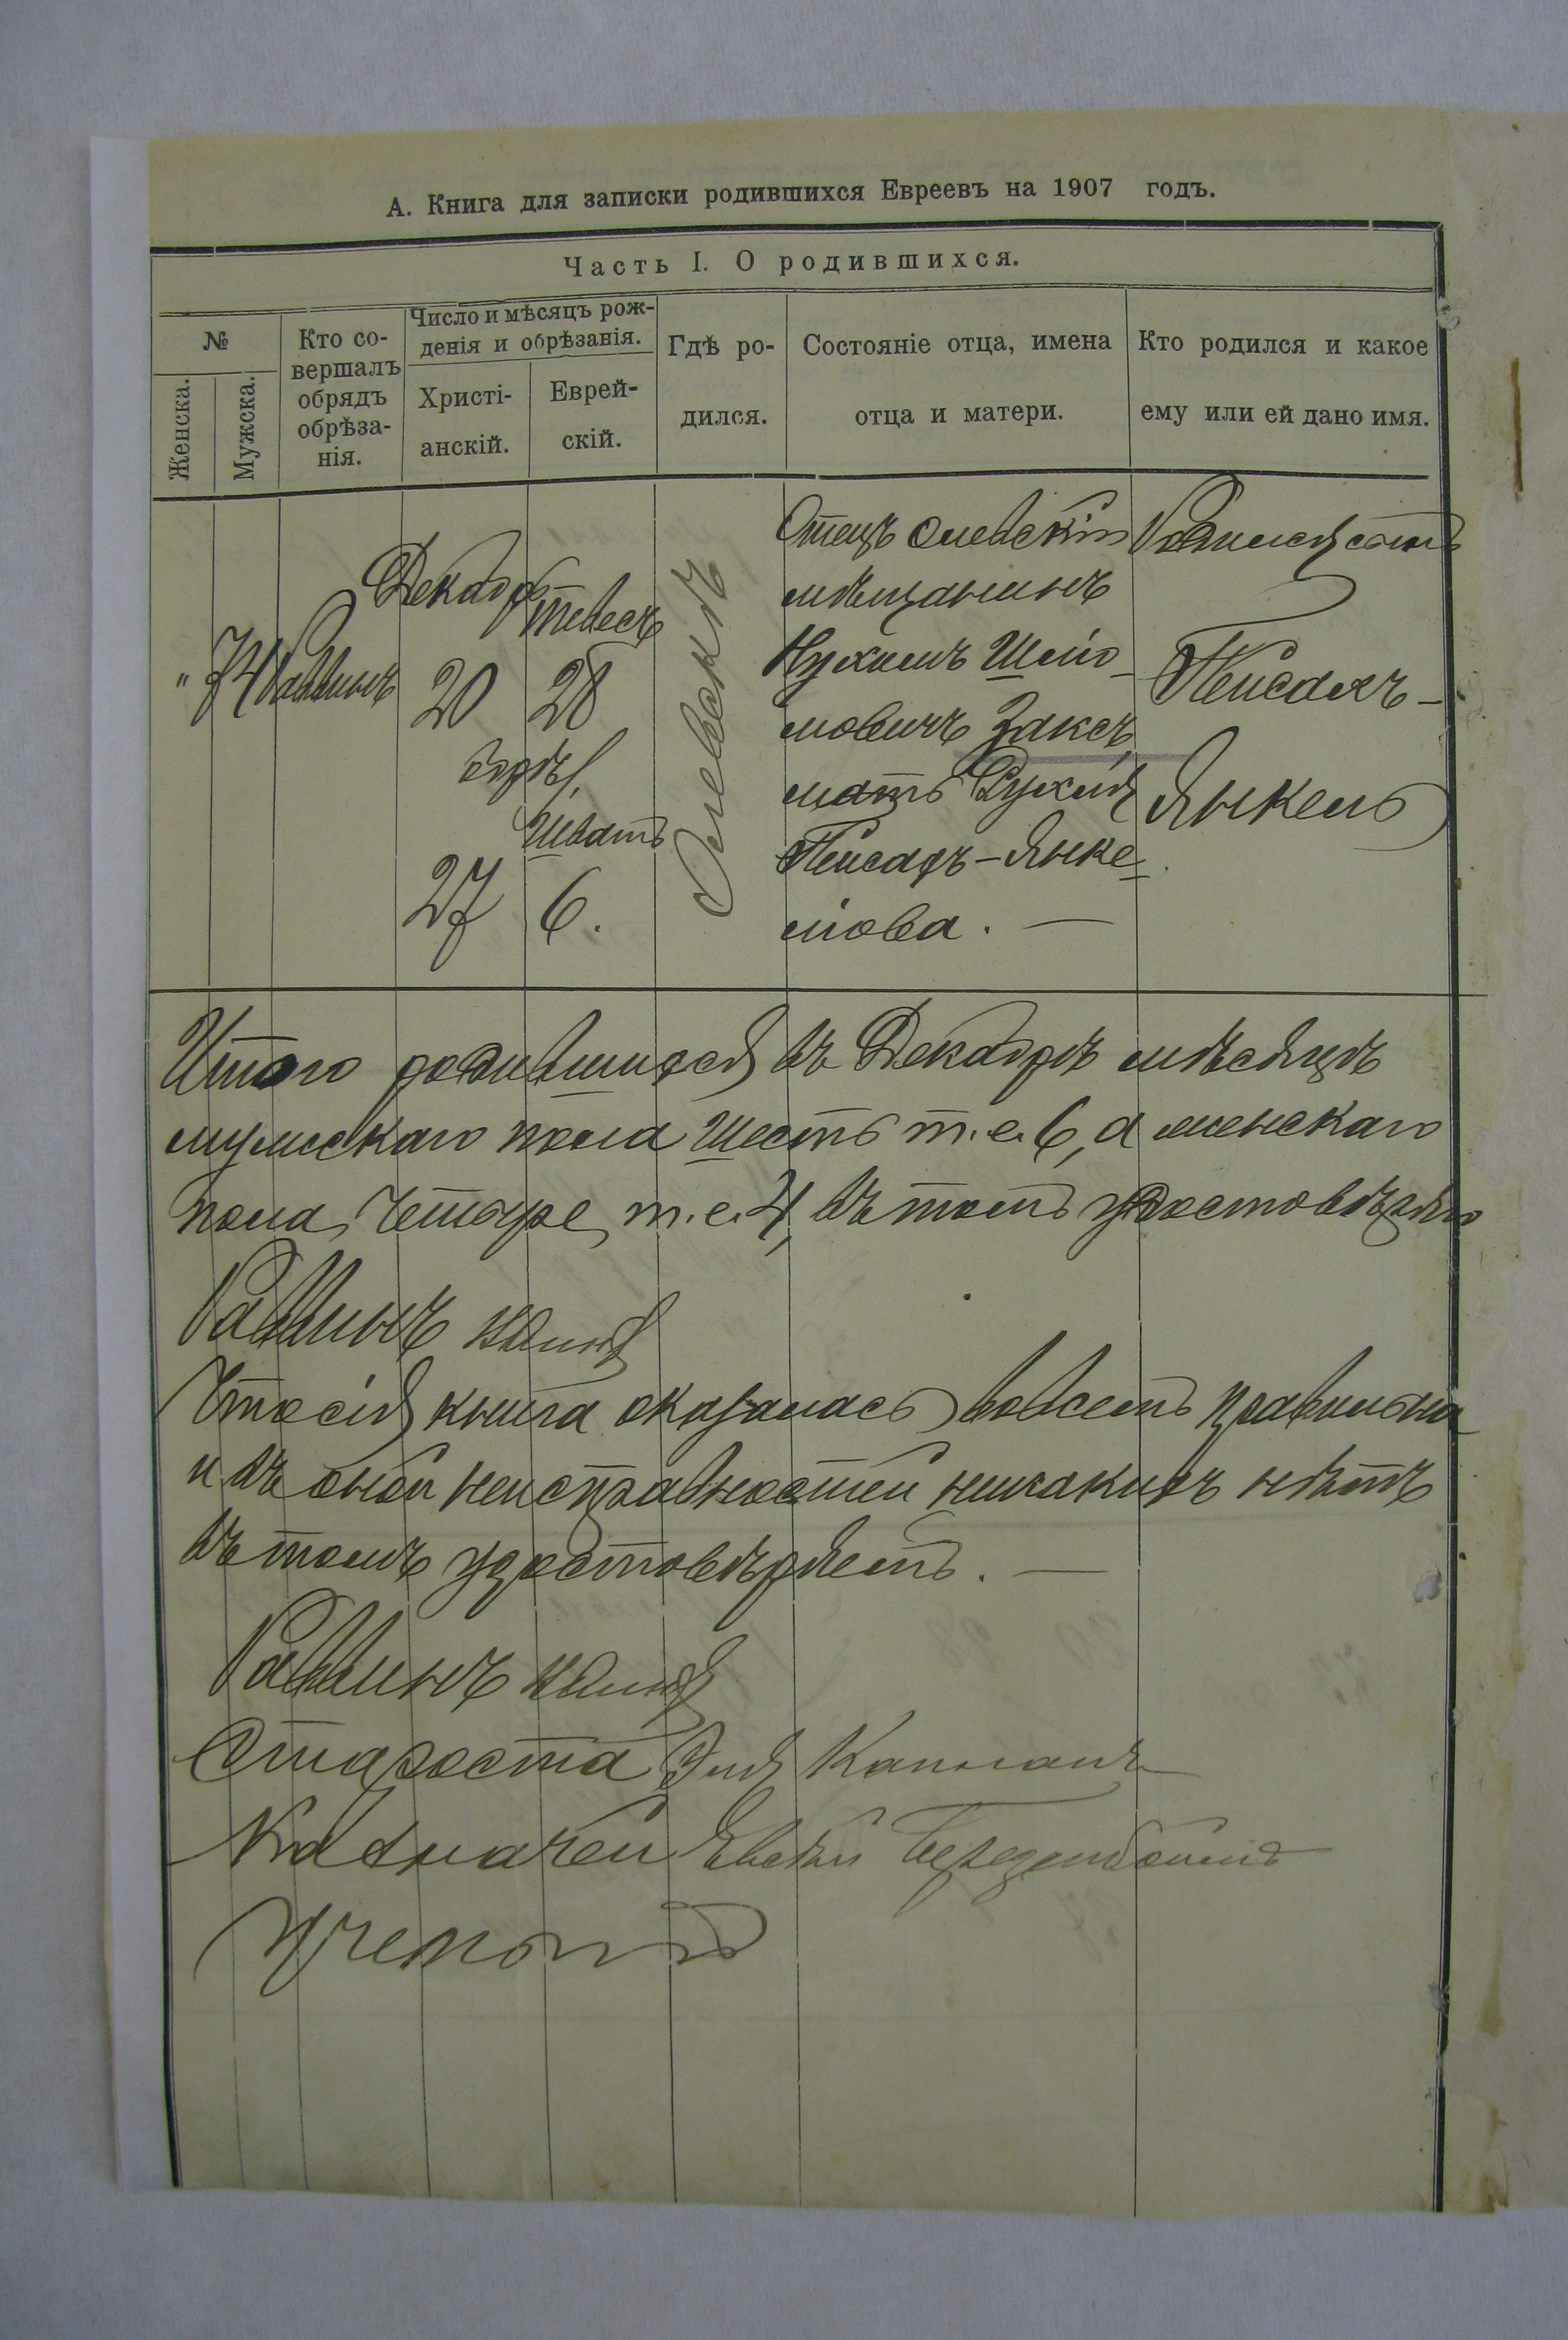 А. Книга для записки родившихся Евреевъ на 1907 годъ.
Часть I. О родившихся.
№
Женска.
Мужска.
Кто со-
вершалъ
обрядъ
обрѣза-
нія.
Число и мѣсяцъ рож-
денія и обрѣзанія.
Христі-
анскій.
Еврей-
скій.
Гдѣ ро-
дился.
Состояніе отца, имена
отца и матери.
Кто родился и какое
ему или ей дано имя.
" 74
Раввинъ
Декабр
20
27
Тевесъ
28
Шватъ
6.
Олевскѣ
Отецъ Олевскій
мѣщанинъ
Нухимъ Шліо-
мовичъ Заксъ,
мать Рухля
Пейсахъ-Янке-
ліова. —
Родился сынъ
Пейсахъ-
Янкель
Итого родившихся въ Декабрѣ мѣсяцѣ
мужскаго пола Шесть т.е. 6, а женскаго
пола, Четыре, т.е. 4, въ томъ удостовѣряю
Раввинъ
Что сія книга оказалась во всемъ правильна
и въ оной неисправностей никакихъ нѣтъ
въ томъ удостовѣряемъ. —
Раввинъ
Староста Эля Капланъ
Казначей
Ученый